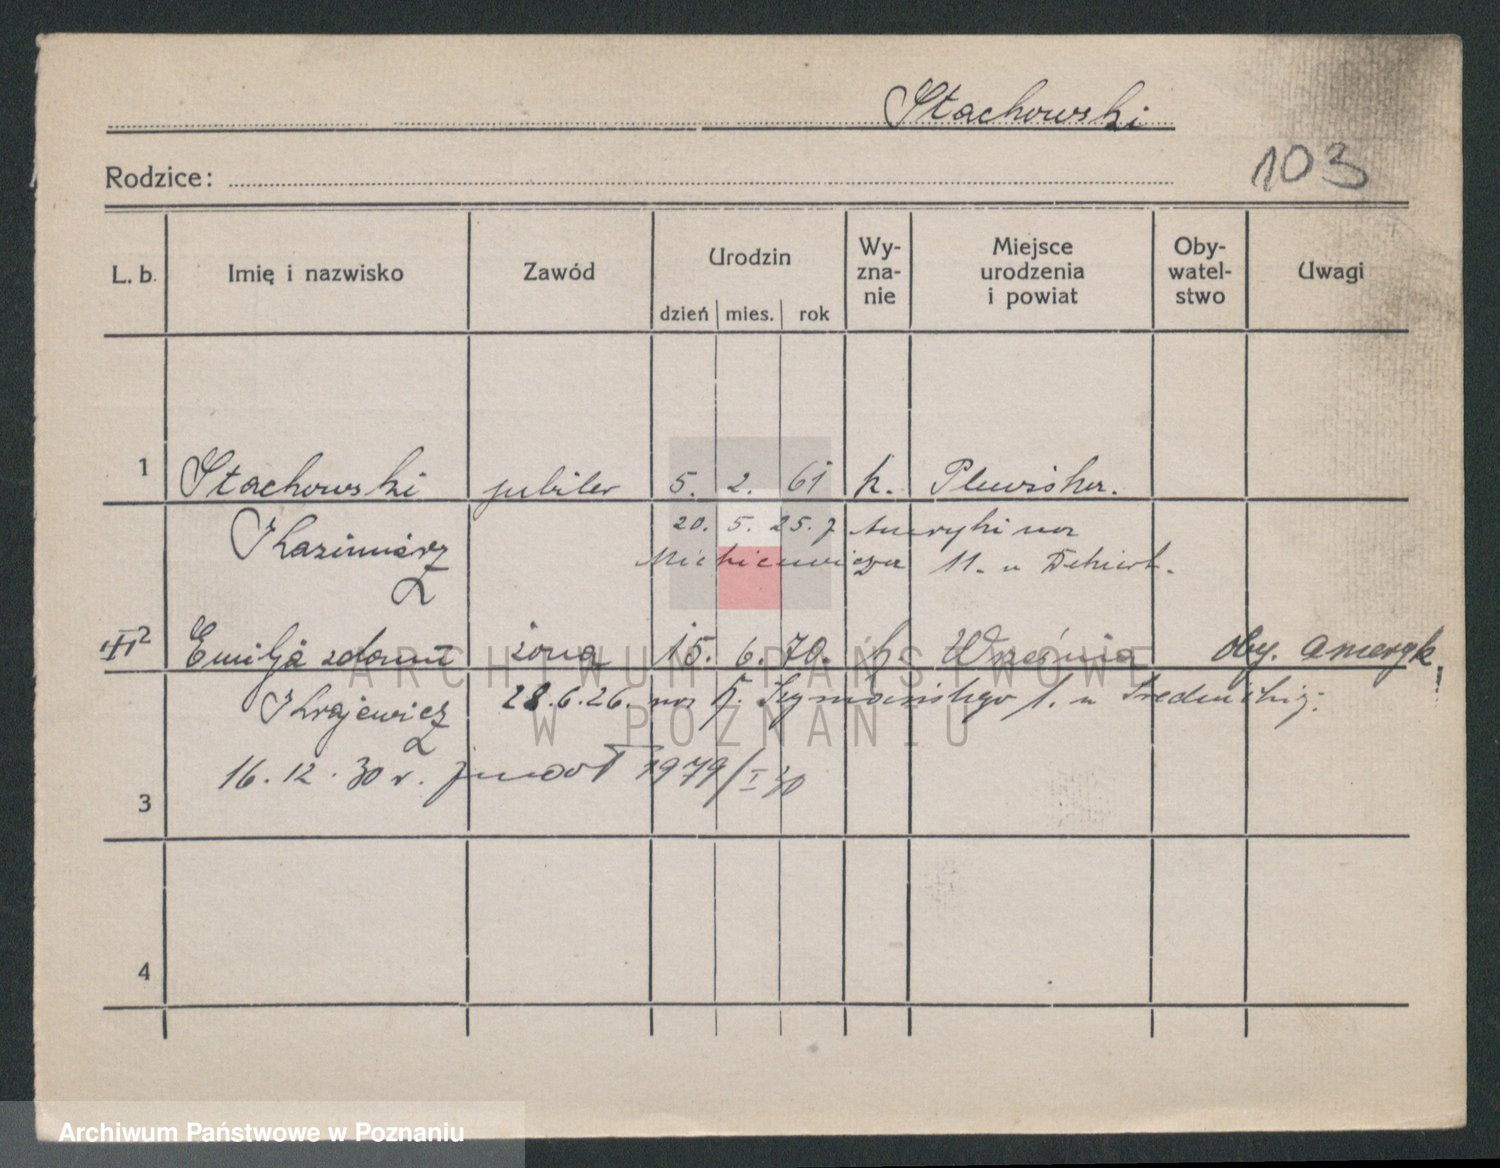 Stachowski
103
Rodzice:
L. b. Imię i nazwisko Zawód Urodzin dzień mies. rok Wy-zna-nie Miejsce urodzenia i powiat Oby-watel-stwo Uwagi
1 Stachowski jubiler 5. 2. 61 k. Plewiska.
Kazimierz 20. 5. 25. z Ameryki na
Mickiewicza 11. u
2 Emilja żona 15. 6. 70. k. Września oby. ameryk!
Krajewicz 28.6.26. na Szymańskiego 1. u
16. 12. 30 r. 1979/I 30
3
4
ARCHIWUM PAŃSTWOWE
W POZNANIU
Archiwum Państwowe w Poznaniu